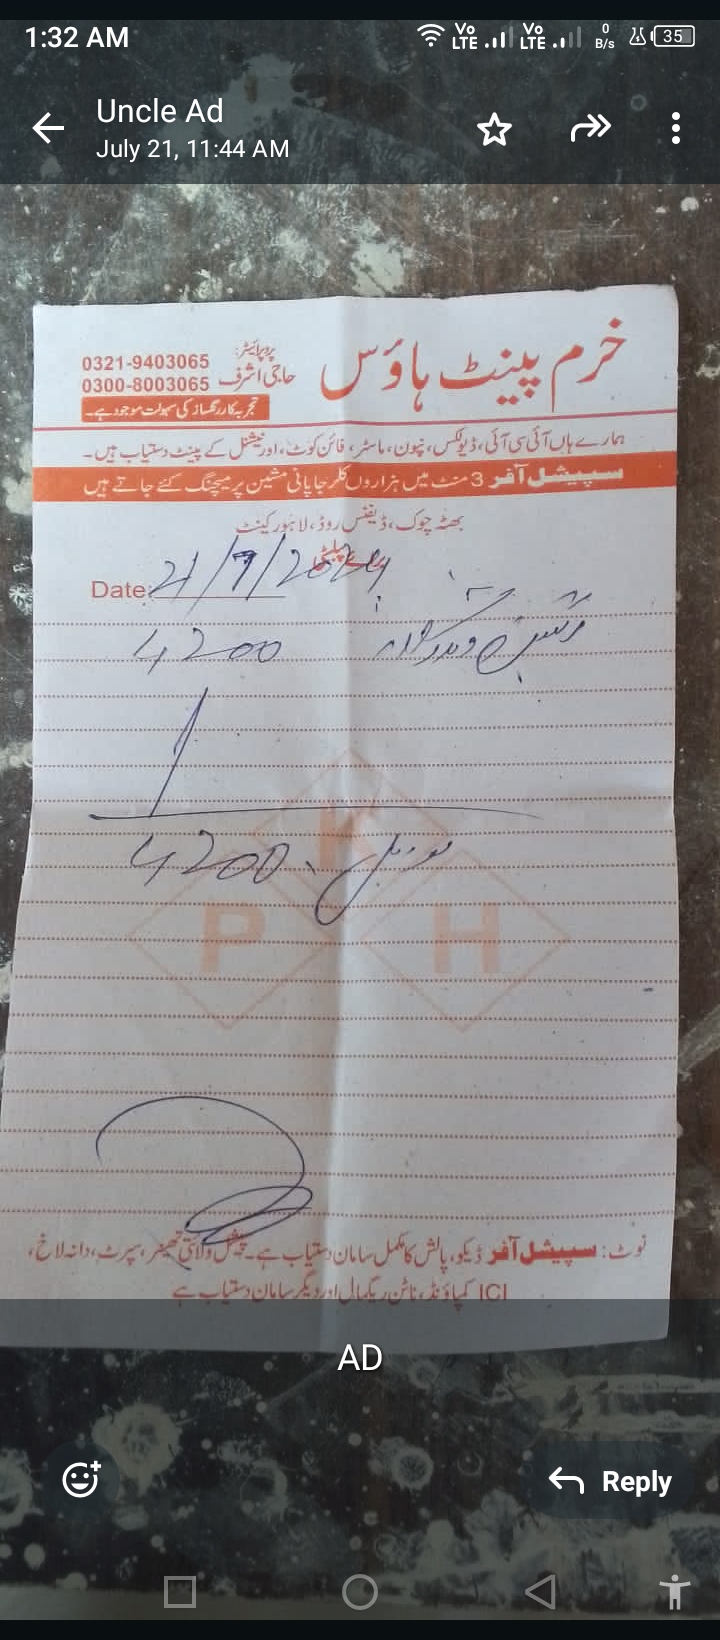 1:32 AM
Vo LTE Vo LTE 0 B/s 35
Uncle Ad
July 21, 11:44 AM
خرم پینٹ ہاؤس
پروپرائیٹر:
حاجی اشرف
0321-9403065
0300-8003065
تجربہ کار رنگساز کی سہولت موجود ہے۔
ہمارے ہاں آئی سی آئی، ڈیولکس، نیپون، ماسٹر، فائن کوٹ، اور نیشنل کے پینٹ دستیاب ہیں۔
سپیشل آفر 3 منٹ میں ہزاروں کلر جاپانی مشین پر میچنگ کئے جاتے ہیں
بھٹہ چوک، ڈیفنس روڈ، لاہور کینٹ
Date: 21/7/2024
4200
4200
K
P H
نوٹ: سپیشل آفر ڈیکو، پالش کا مکمل سامان دستیاب ہے۔ سپیشل ولائتی تھینر، سپرٹ، دانہ لاخ،
ICI کمپاؤنڈ، ناٹن ریگمال اور دیگر سامان دستیاب ہے
AD
Reply